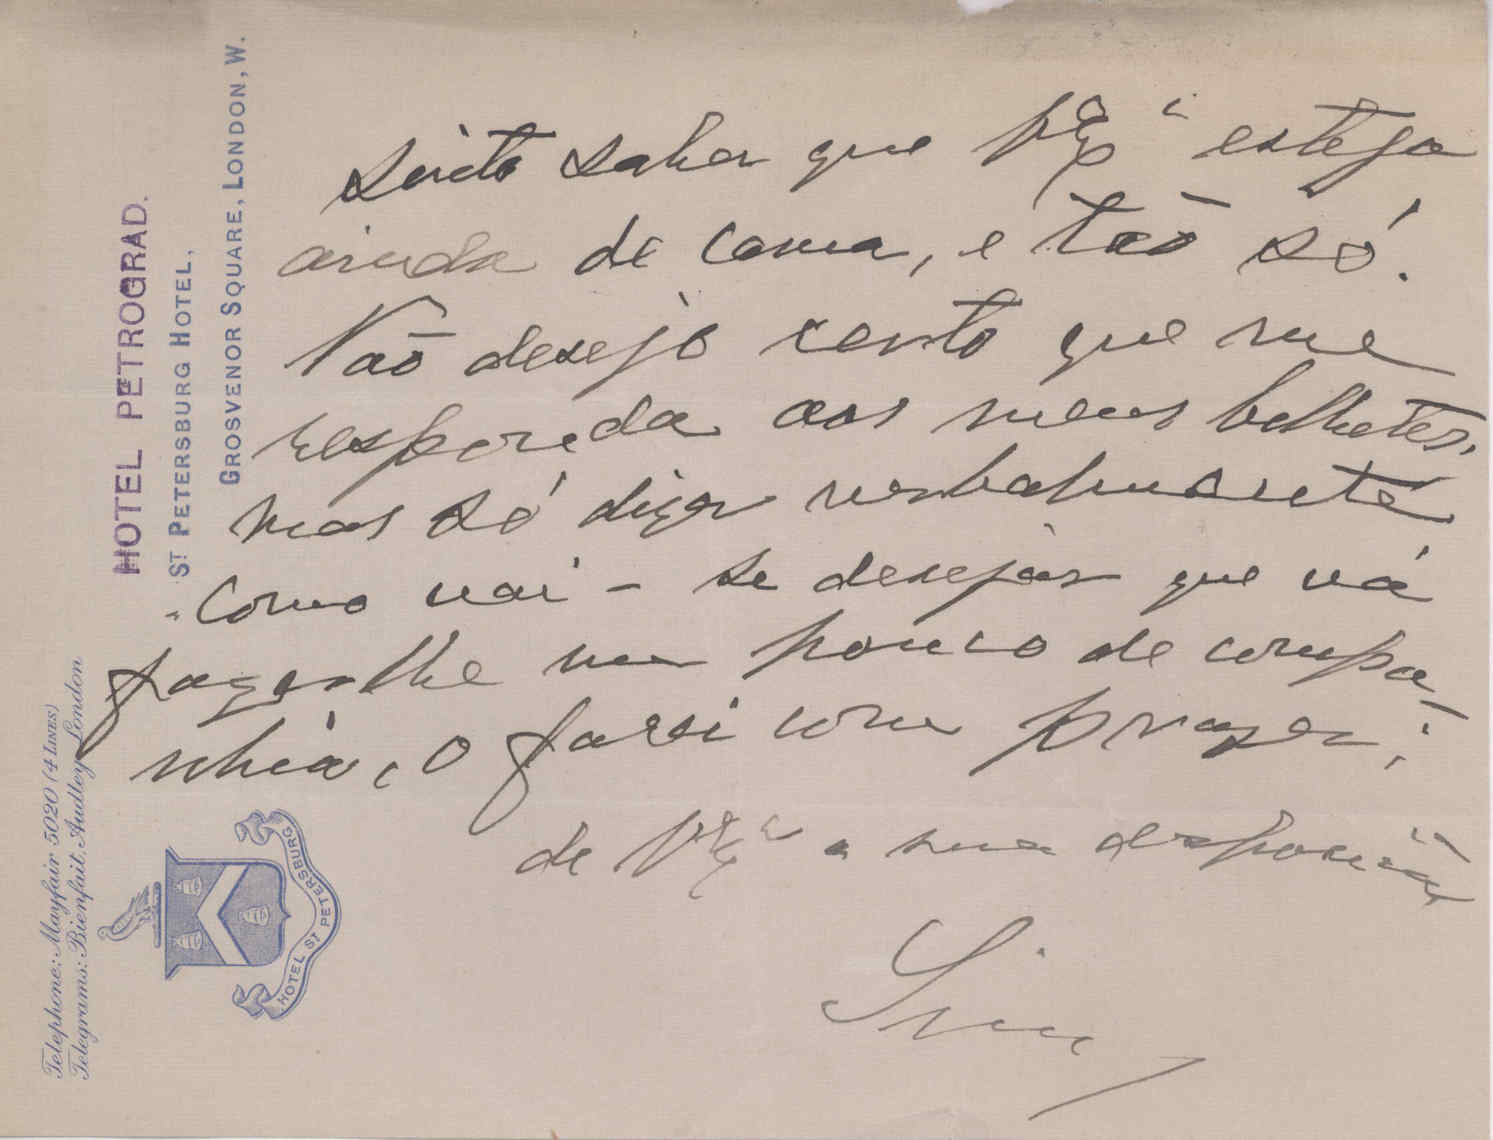 HOTEL PETROGRAD.
ST PETERSBURG HOTEL,
GROSVENOR SQUARE, LONDON, W.
Telephone: Mayfair 5020 (4 LINES)
Telegrams: Bienfait, Audley, London
HOTEL ST PETERSBURG
Sinto saber que V. Exª esteja
ainda de cama, e tão só.
Não desejo canto que me
responda aos meus bilhetes,
mas só dizer verbalmente
como vai – se desejar que vá
fazer-lhe um pouco de compa-
nhia, o farei com prazer;
de V. Exª a sua disposição